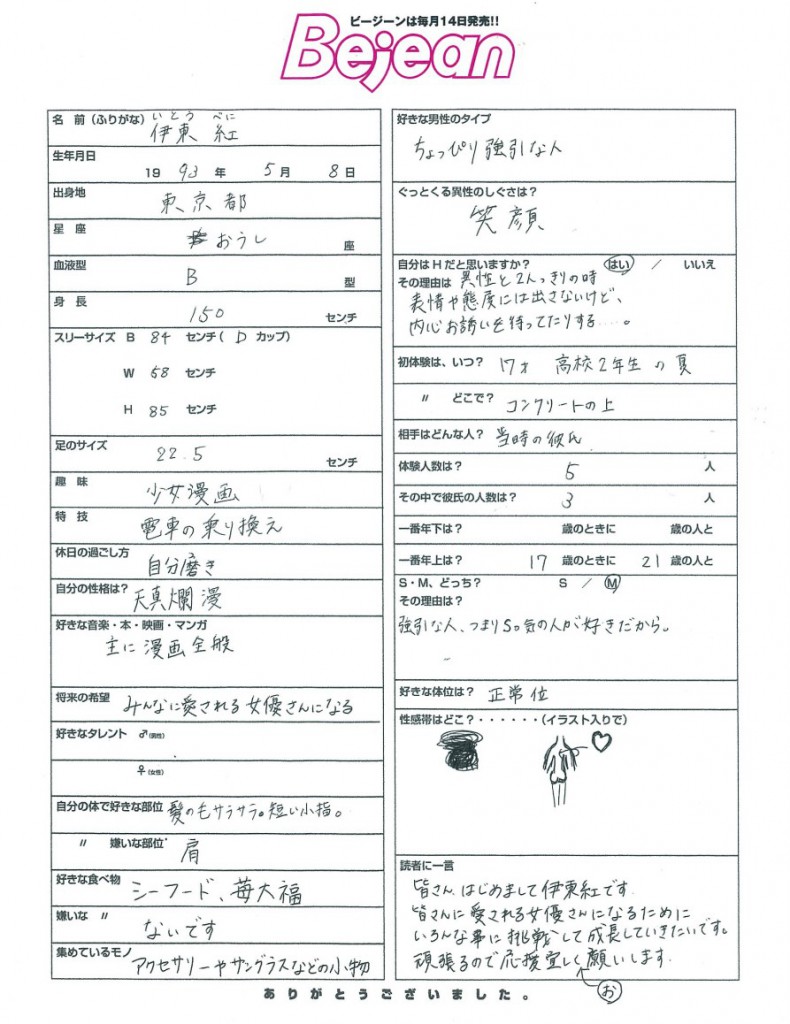 ビージーンは毎月14日発売!!
Bejean
名 前（ふりがな） いとう べに
伊東 紅
生年月日
19 93 年 5 月 8 日
出身地 東京都
星 座 おうし 座
血液型 B 型
身 長 150 センチ
スリーサイズ B 84 センチ（ D カップ）
W 58 センチ
H 85 センチ
足のサイズ 22.5 センチ
趣 味 少女漫画
特 技 電車の乗り換え
休日の過ごし方 自分磨き
自分の性格は？ 天真爛漫
好きな音楽・本・映画・マンガ
主に漫画全般
将来の希望 みんなに愛される女優さんになる
好きなタレント ♂(男性)
♀(女性)
自分の体で好きな部位 髪の毛サラサラ。短い小指。
〃 嫌いな部位 肩
好きな食べ物 シーフード、苺大福
嫌いな 〃 ないです
集めているモノ アクセサリーやサングラスなどの小物
好きな男性のタイプ
ちょっぴり強引な人
ぐっとくる異性のしぐさは？
笑顔
自分はHだと思いますか？ はい ／ いいえ
その理由は 異性と2人っきりの時
表情や態度には出さないけど、
内心お誘いを待ってたりする……。
体験人数は？ 5 人
その中で彼氏の人数は？ 3 人
一番年下は？ 歳のときに 歳の人と
S・M、どっち？ S ／ M
その理由は？
強引な人、つまりSっ気の人が好きだから。
好きな体位は？ 正常位
性感帯はどこ？・・・・・・（イラスト入りで）
読者に一言
皆さん はじめまして伊東紅です
皆さんに愛される女優さんになるために
いろんな事に挑戦して成長していきたいです。
頑張るので応援宜しくお願いします
ありがとうございました。